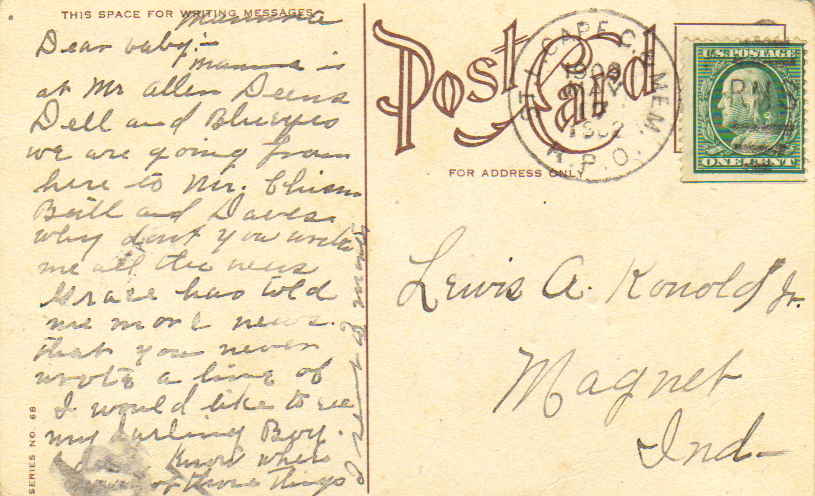 THIS SPACE FOR WRITING MESSAGES
Mamma
Dear baby:-
mamma is
at Mr Allen Deens
Dell and Blueyes
we are going from
here to Mr. Chism
Bill and Daves.
why dont you write
me all the news
Grace has told
me more news.
that you never
wrote a line of
I would like to see
my darling Boy.
know where
of those things
SERIES NO. 68
Post Card
FOR ADDRESS ONLY
ST. L. CAPE G. & MEM.
R.P.O.
U.S. POSTAGE
ONE CENT
Lewis A. Konold Jr.
Magnet
Ind-